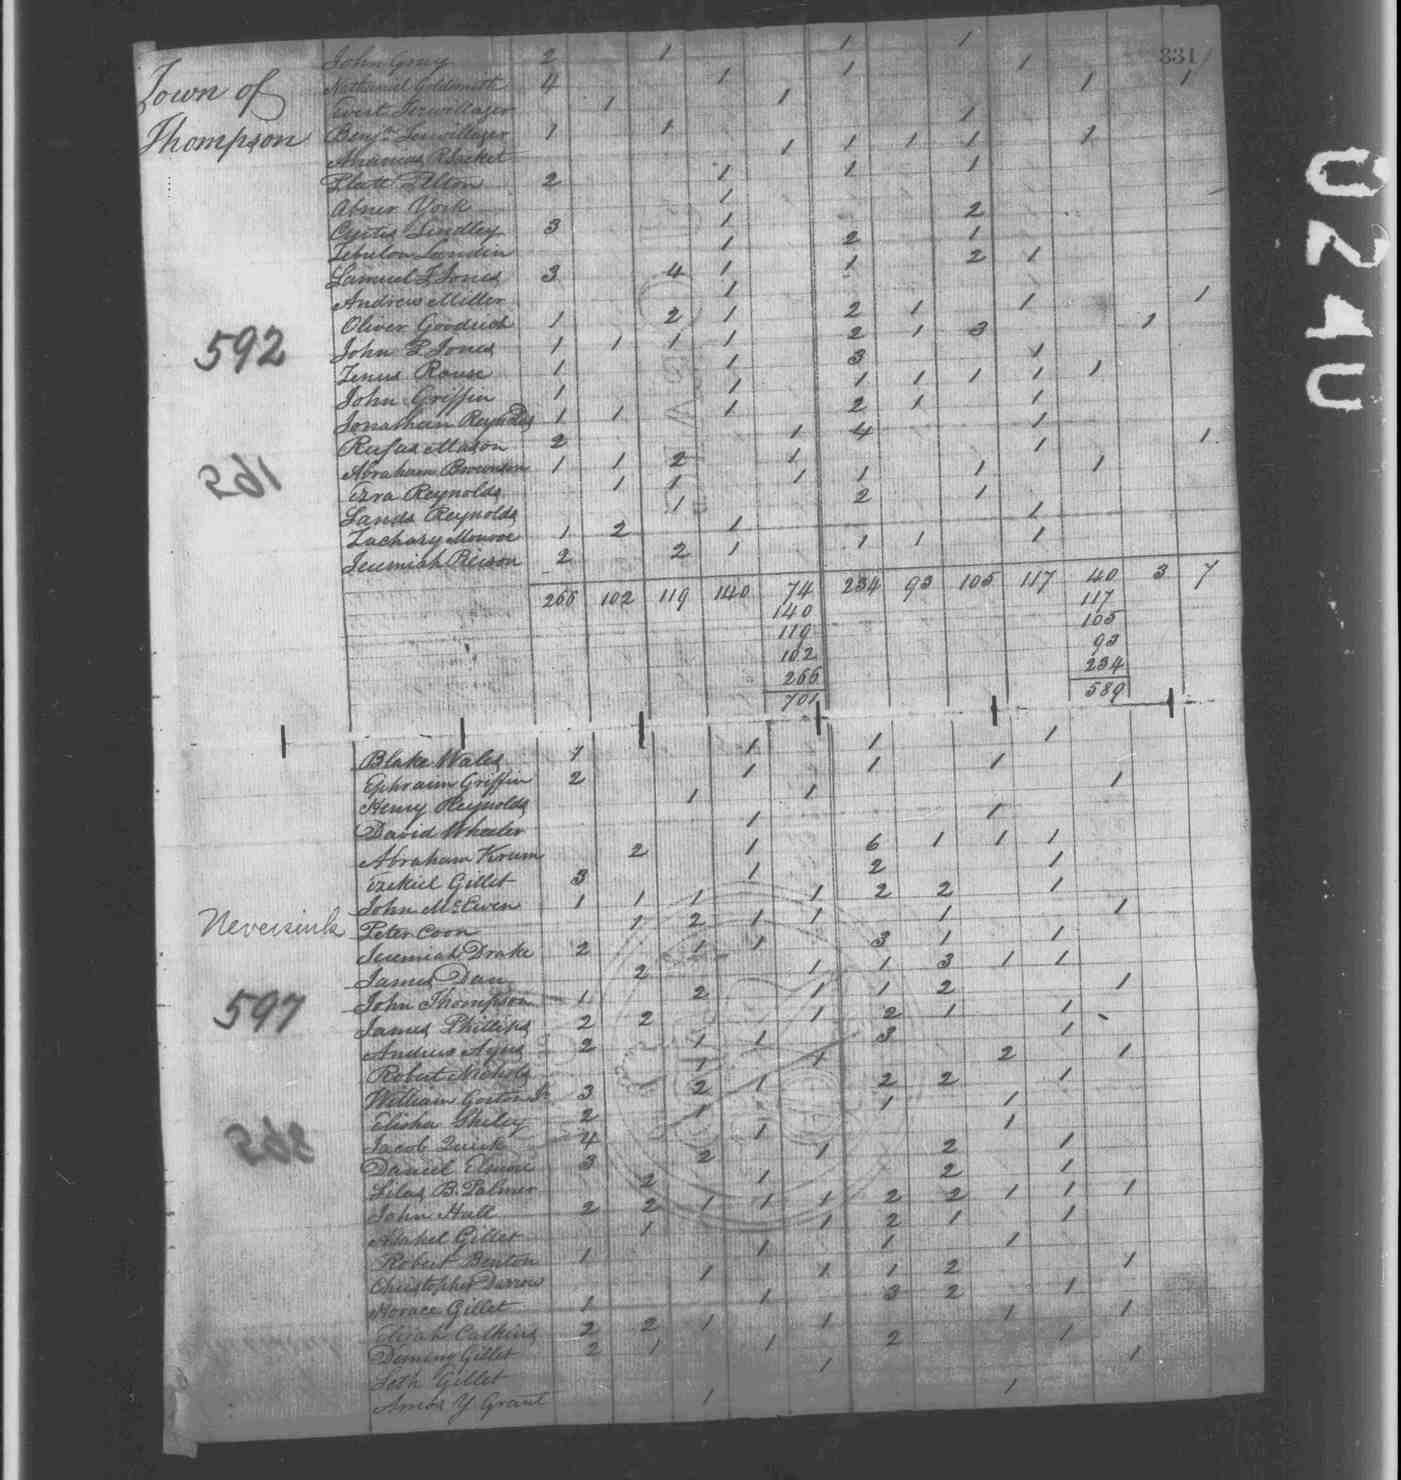 331
Town of
Thompson
John Gray 2 1 1 1
Nathaniel Goldsmith 4 1 1 1
Evert Terwillager 1 1 1 1
Benjn Terwillager 1 1 1
Ahamas R Sacket 1 1 1 1 1
Platt Pelton 2 1 1 1
Abner York 1
Curtis Lindley 3 1 2
Zebulon 1 2 1
Samuel F Jones 3 4 1 1 2 1
Andrew Miller 1
Oliver Goodrich 1 2 1 2 1 1 1
592
John P Jones 1 1 1 1 2 1 3 1
Zenus Rouse 1 1 3 1
John Griffin 1 1 1 1 1 1 1
Jonathan Reynolds 1 1 1 2 1 1
Rufus Mason 2 1 4 1
Abraham Brownson 1 1 2 1 1 1
Ezra Reynolds 1 1 1 1 1 1
Sands Reynolds 1 2 1
Zachary Monroe 1 2 1 1
Jeremiah Pierson 2 2 1 1 1 1
266 102 119 140 74 234 93 105 117 40 3 7
140 117
119 105
102 93
266 234
701 589
Blake Wales 1 1 1 1
Ephraim Griffin 2 1 1 1
Henry Reynolds 1 1 1
David Wheeler 1 1
Abraham Krum 2 1 6 1 1 1
Ezekiel Gillet 3 1 2 1
John McEwen 1 1 1 1 2 2 1
Neversink
Peter Coon 1 2 1 1 1 1
Jeremiah Drake 2 1 1 3 1 1
James Dan 2 1 1 3 1 1
John Thompson 1 2 1 1 2 1
597
James Phillips 2 2 1 2 1 1
Andrew Ayres 2 1 1 3 1
Robert Nichols 1 1 2 1
William Gorton Jr 3 2 1 2 2 1
Elisha Shiley 2 1 1 1
Jacob Quick 4 1 1
Daniel Elmore 3 2 1 2 1
Silas B. Palmer 2 1 2 1
John Hall 2 2 1 1 1 2 2 1 1 1
Asahel Gillet 1 1 2 1 1
Robert Benton 1 1 1 1
Christopher Darrow 1 1 1 2 1
Horace Gillet 1 1 3 2 1
Elijah Calkins 2 2 1 1 1 1
Deming Gillet 2 1 1 2 1
Seth Gillet 1 1
Amos Y Grant 1 1
0240